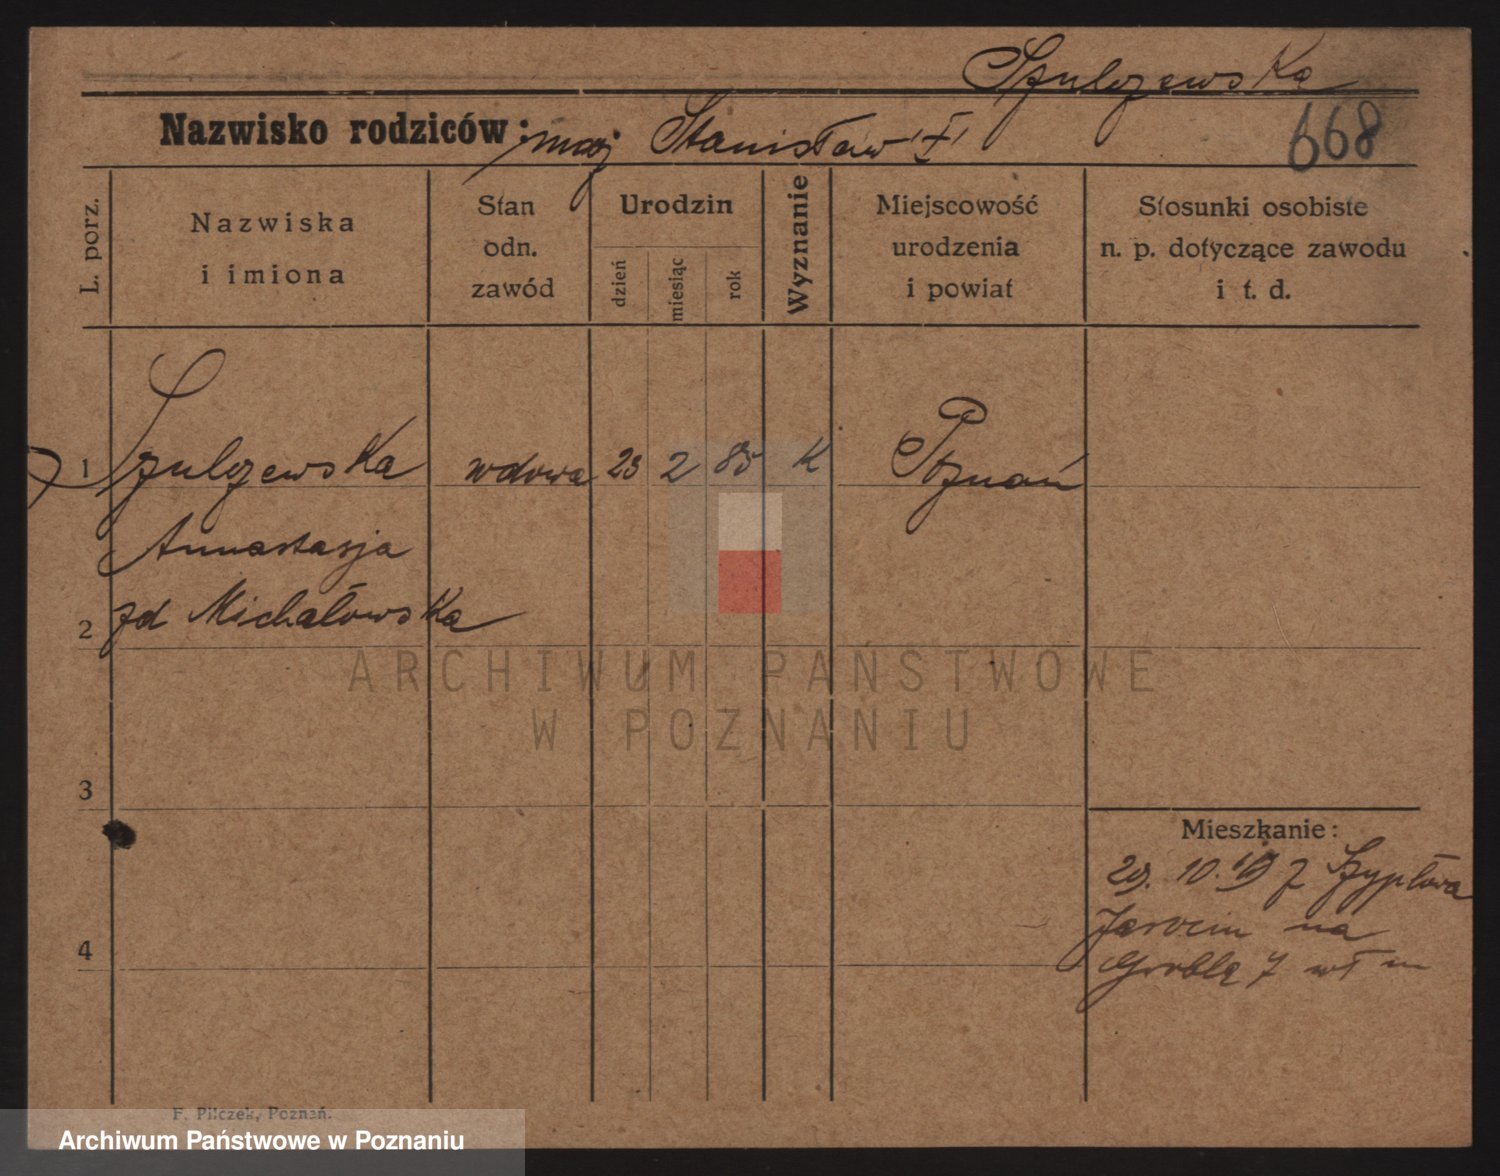 Szulczewska
Nazwisko rodziców: mąż Stanisław "I"
668
L. porz.
Nazwiska
i imiona
Stan
odn.
zawód
Urodzin
dzień
miesiąc
rok
Wyznanie
Miejscowość
urodzenia
i powiat
Stosunki osobiste
n. p. dotyczące zawodu
i t. d.
1 Szulczewska wdowa 23 2 85 K Poznań
Annastazja
2 zd Michałowska
ARCHIWUM PAŃSTWOWE
W POZNANIU
3
Mieszkanie:
29. 10. 19 z Szypłowa
Jarocin na
4 Groblą 7 wł m
F. Pilczek, Poznań.
Archiwum Państwowe w Poznaniu